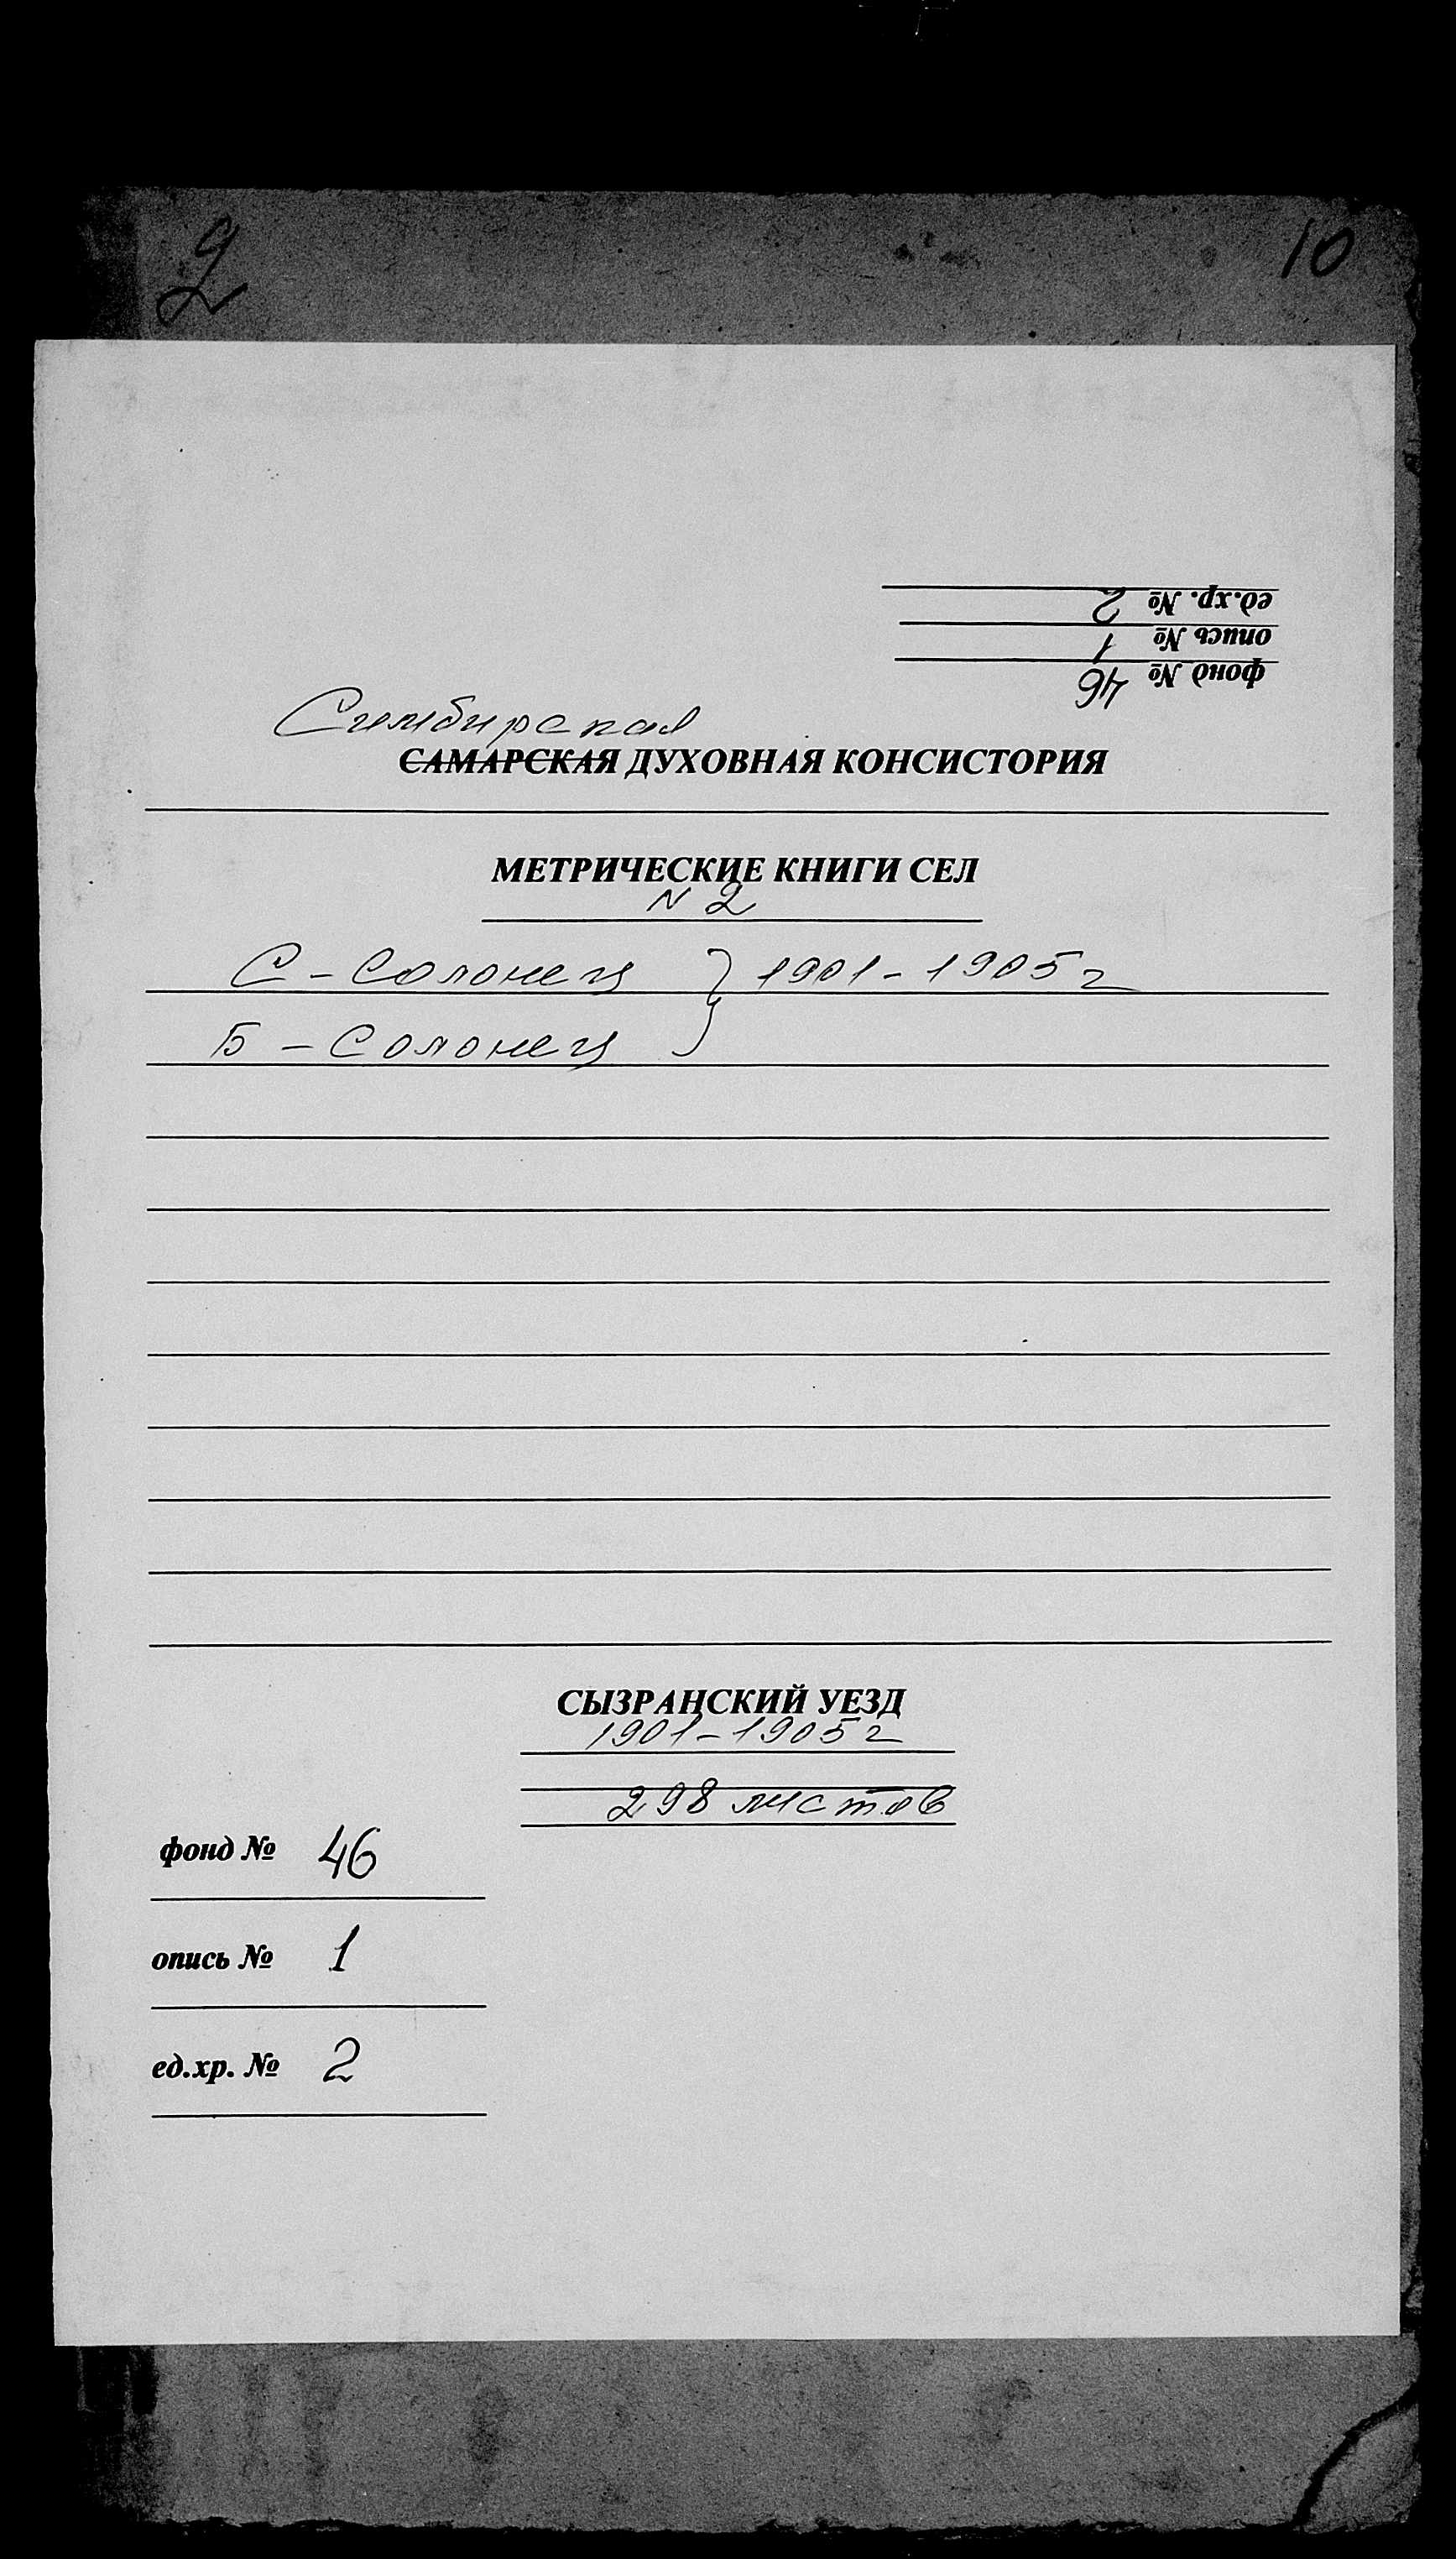 2
10
ед.хр. № 2
опись № 1
фонд № 46
Симбирская
САМАРСКАЯ ДУХОВНАЯ КОНСИСТОРИЯ
МЕТРИЧЕСКИЕ КНИГИ СЕЛ
N 2
С - Солонец } 1901 - 1905 г
Б - Солонец
СЫЗРАНСКИЙ УЕЗД
1901 - 1905 г
298 листов
фонд № 46
опись № 1
ед.хр. № 2